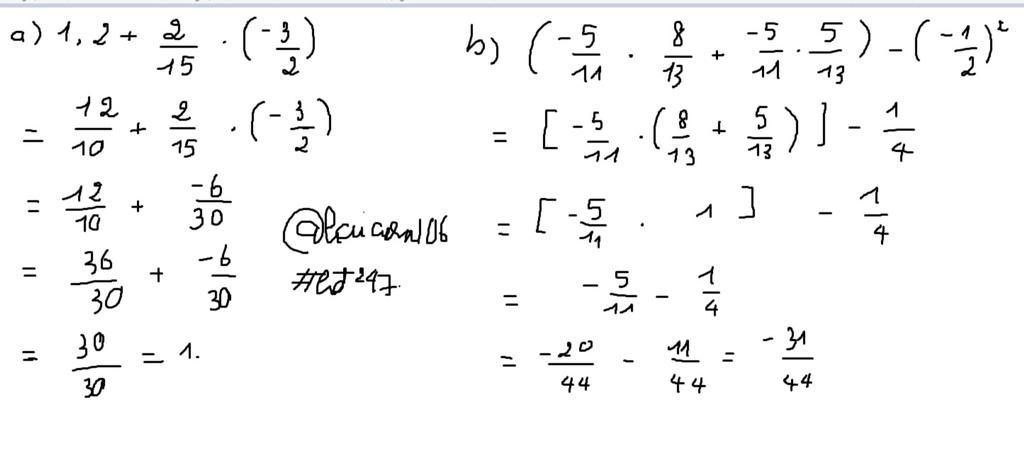 a) 1,2 + 2/15 . (-3/2)
= 12/10 + 2/15 . (-3/2)
= 12/10 + -6/30
= 36/30 + -6/30
= 30/30 = 1.
#hd247
b) (-5/11 . 8/13 + -5/11 . 5/13) - (-1/2)²
= [-5/11 . (8/13 + 5/13)] - 1/4
= [-5/11 . 1] - 1/4
= -5/11 - 1/4
= -20/44 - 11/44 = -31/44